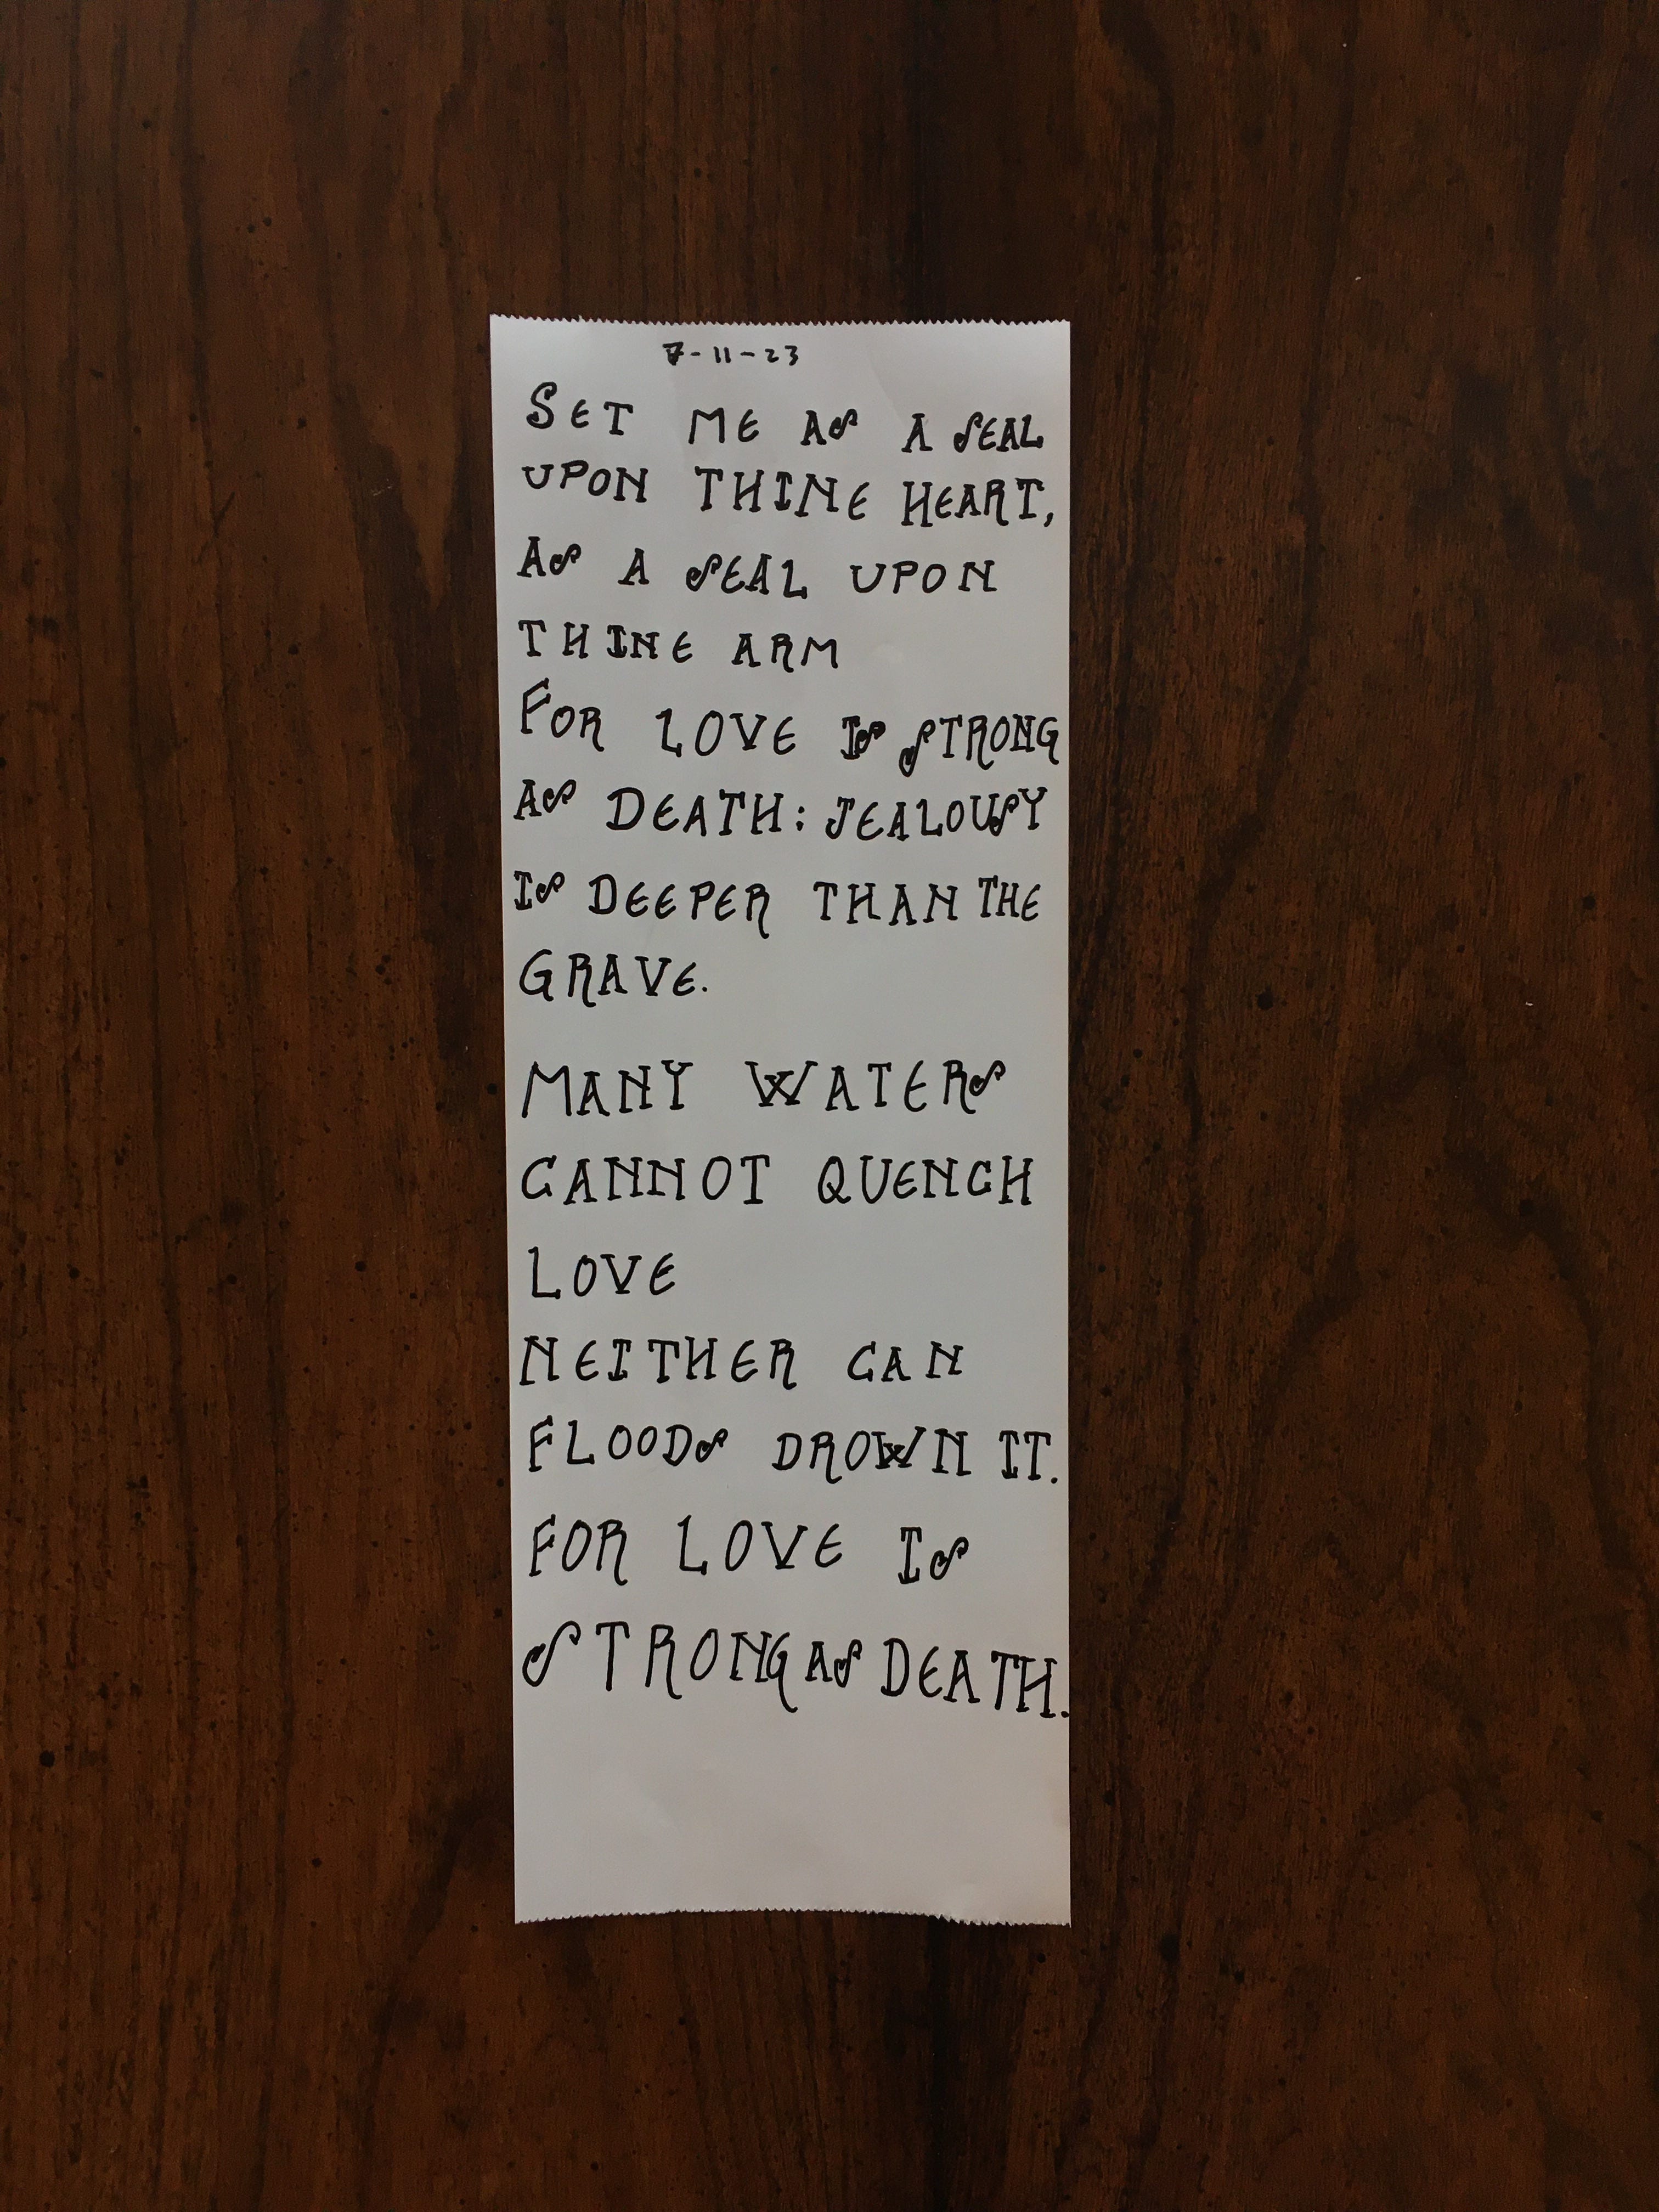 7-11-23
SET ME AS A SEAL
UPON THINE HEART,
AS A SEAL UPON
THINE ARM
FOR LOVE IS STRONG
AS DEATH: JEALOUSY
IS DEEPER THAN THE
GRAVE.
MANY WATERS
CANNOT QUENCH
LOVE
NEITHER CAN
FLOODS DROWN IT.
FOR LOVE IS
STRONG AS DEATH.